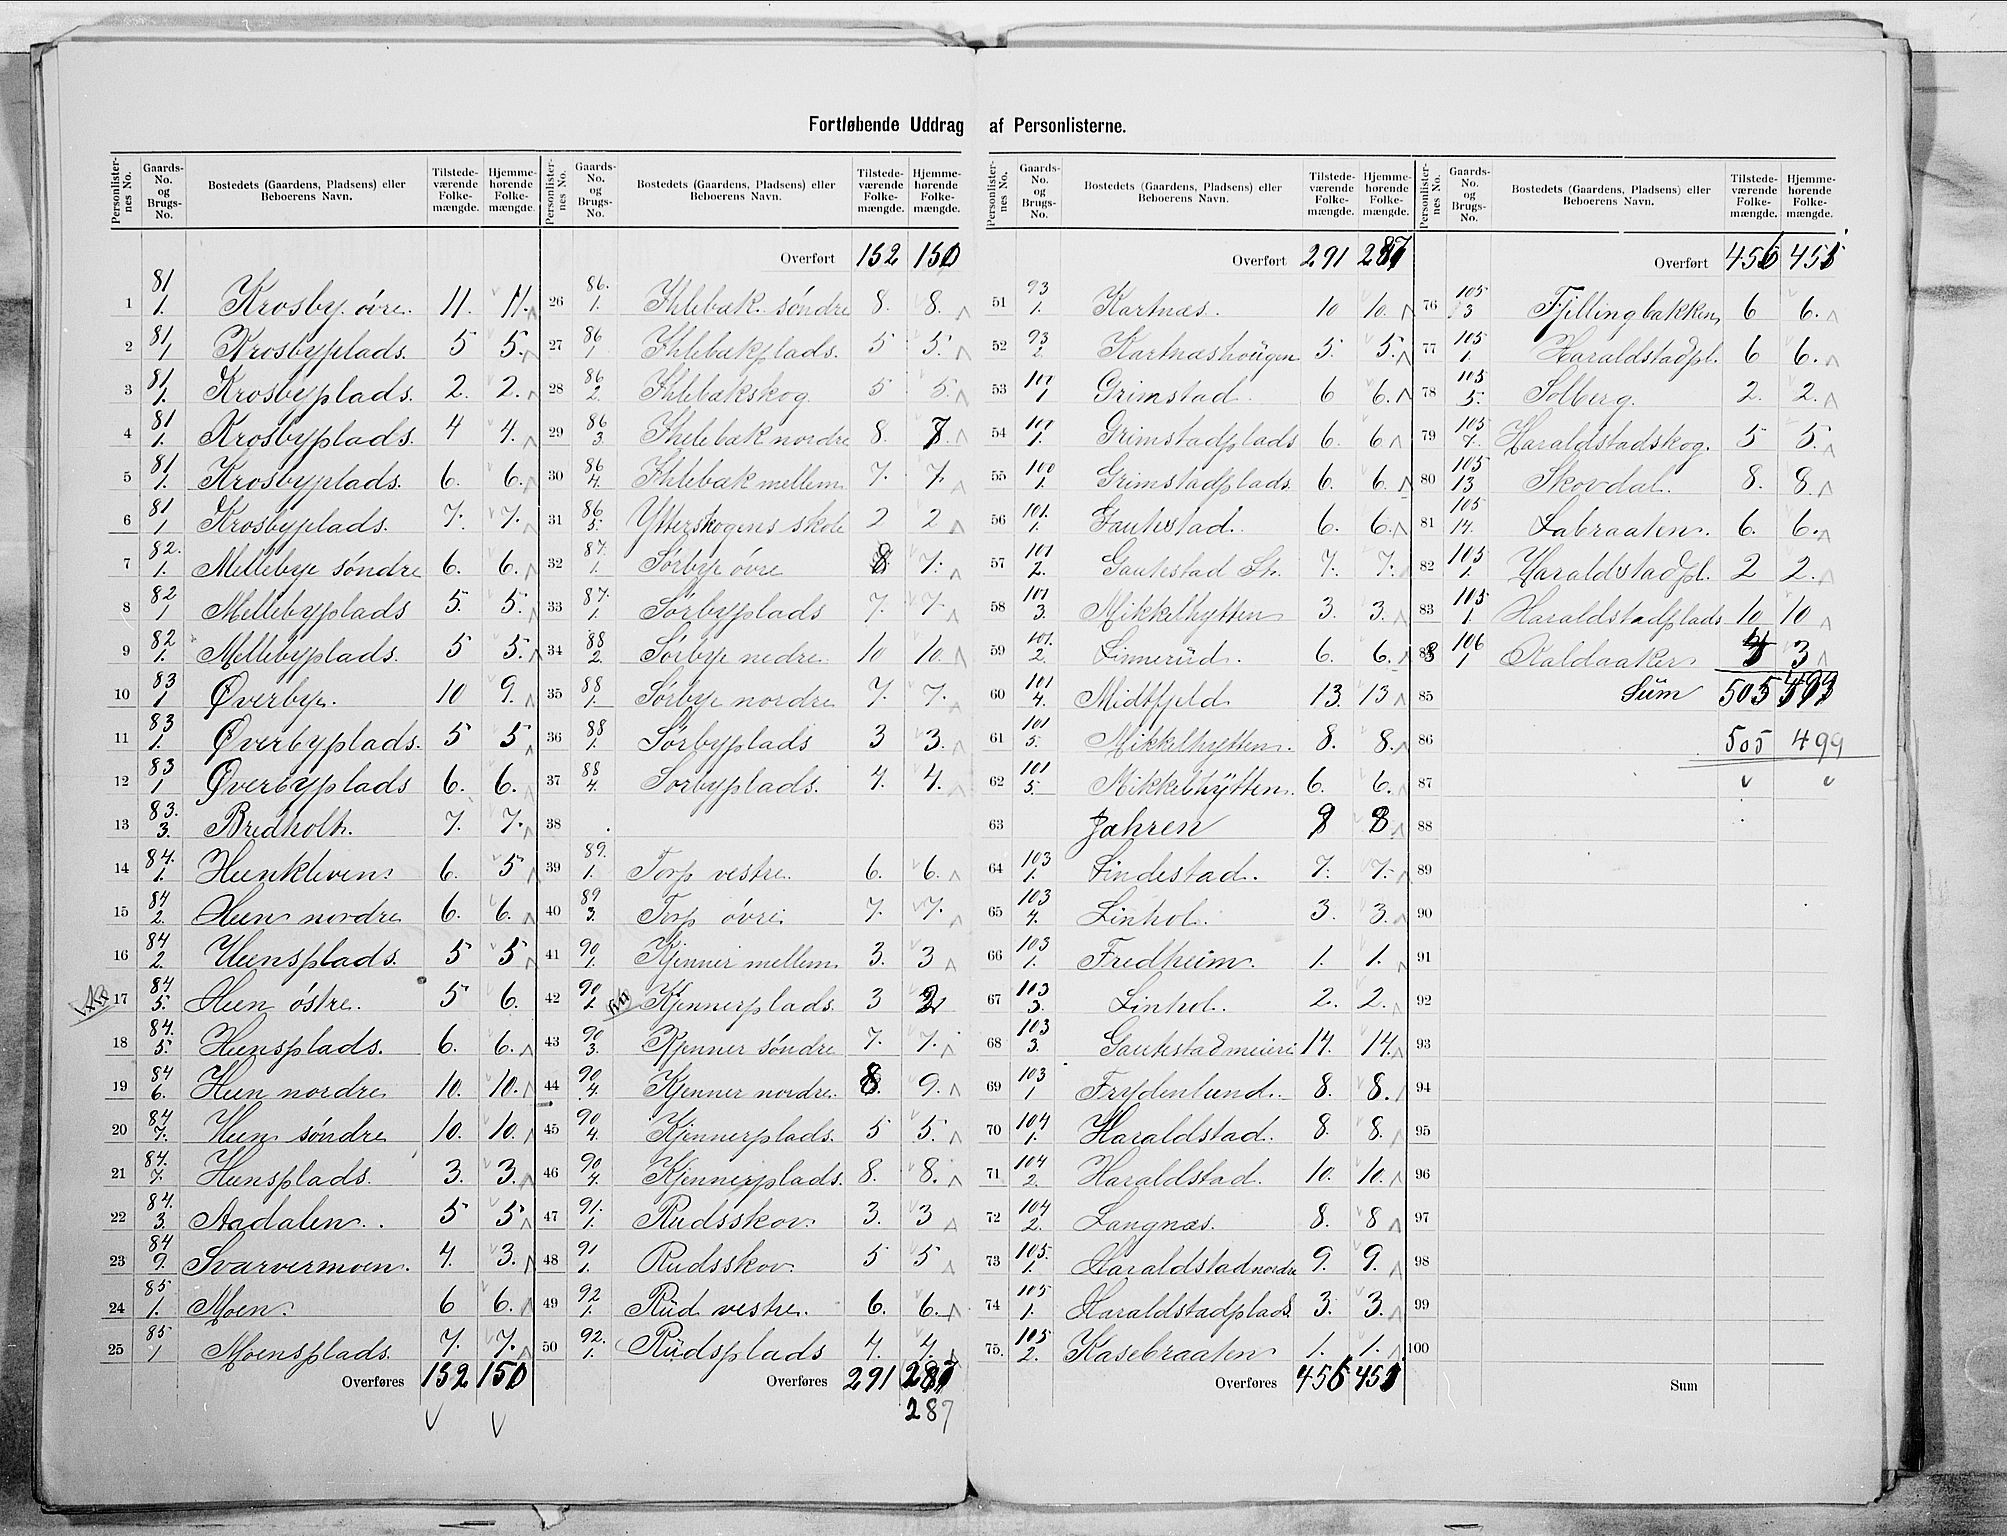 Fortløbende Uddrag af Personlisterne.
Personlisternes No. | Gaards-No. og Brugs-No. | Bostedets (Gaardens, Pladsens) eller Beboerens Navn. | Tilstedeværende Folkemængde. | Hjemmehørende Folkemængde.
1 81/1. Krosby øvre. 11. 11.
2 81/1 Krosbyplads. 5 5.
3 81/1. Krosbyplads. 2. 2.
4 81/1. Krosbyplads. 4 4.
5 81/1. Krosbyplads. 6. 6.
6 81/1 Krosbyplads. 7. 7.
7 82./1. Mellebye søndre 6. 6.
8 82/1 Mellebyplads 5. 5.
9 82/1. Mellebyplads. 5 5.
10 83/1 Øverbye. 10 9.
11 83/1. Øverbyplads. 5 5
12 83/1 Øverbyplads 6. 6.
13 83./3. Bredholt. 7. 7.
14 84./1. Heenkleven. 6. 5
15 84/2. Heen nordre 6. 6.
16 84/2. Heensplads. 5 5
17 84/5. Heen østre. 5 6.
18 84./5. Hensplads. 6. 6.
19 84/6. Heen nordre 10. 10.
20 84/7. Heen søndre 10. 10.
21 84./7. Hensplads. 3. 3.
22 84./3. Aadalen. 5 5
23 84/9. Svarvermoen. 4. 3.
24 85/1. Moen. 6 6.
25 85/1 Moensplads. 7. 7.
Overføres 152 150
Overført 152 150
26 86./1. Ihlebæk søndre 8. 8.
27 86/1 Ihlebækplads. 5 5.
28 86/2. Ihlebækskog 5 5.
29 86/3. Ihlebæk nordre 8. 7
30 86/4. Ihlebæk mellem 7. 7.
31 86/5. Ytterskogens skole 2 2
32 87./1. Sørbye øvre 8 7.
33 87./1. Sørbyplads 7. 7.
34 88/2. Sørbye nedre 10 10.
35 88/1. Sørbye nordre 7. 7.
36 88/1. Sørbyplads 3 3.
37 88/4. Sørbyplads. 4. 4.
38
39 89./1. Torp vestre. 6. 6.
40 89/3. Torp øvre 7. 7.
41 90/1. Kjenner mellem 3. 3
42 90/1. Kjennerplads. 3 2
43 90/3. Kjenner søndre 7. 7.
44 90/4. Kjenner nordre. 8. 9.
45 90/4. Kjennerplads. 5 5.
46 90/4. Kjennerplads. 8. 8.
47 91./1. Rudsskov. 3. 3
48 91/1. Rudsskov. 5 5
49 92/1. Rud vestre. 6. 6.
50 92./1. Rudsplads 4. 4.
Overføres 291 287
287
Overført 291 287
51 93/1. Kartnæs. 10 10.
52 93/2. Kartnæshougen 5. 5.
53 100/1 Grimstad. 6 6.
54 100/1. Grimstadplads 6. 6
55 100/1. Grimstadplads. 6. 6.
56 101./1. Gautestad. 6. 6.
57 101/2. Gautestad St. 7. 7.
58 101/3. Mikkelhytten 3. 3.
59 101./2. Linnerud. 6. 6.
60 101/4. Midtfjeld 13. 13
61 101/5. Mikkelhytten. 8. 8.
62 101/5. Mikkelhytten. 6. 6.
63 Jahren 8 8.
64 103/1. Lindestad. 7. 7.
65 103/4. Linhol. 3. 3.
66 103/1. Fredheim. 1. 1.
67 103/3. Linhol. 2. 2.
68 103/3. Gautestad meieri 14. 14.
69 103/1 Frydenlund. 8. 8.
70 104/1. Haraldstad. 8. 8.
71 104/2. Haraldstad. 10. 10.
72 104/2. Langnæs. 8. 8
73 105./1. Haraldstad nordre 9. 9.
74 105/1. Haraldstadplads. 3. 3.
75. 105/2. Kasebraaten 1. 1.
Overføres 456 451
Overført 456 451
76 105/3 Fjellingbakken 6 6.
77 105/1. Haraldstadpl. 6 6.
78 105/5. Solberg. 2. 2.
79 105/7. Haraldstadskog. 5 5.
80 105/13 Skovdal. 8. 8.
81 105/14. Labraaten. 6. 6.
82 105/1. Haraldstadpl. 2 2.
83 105/1. Haraldstadplads 10 10
106/1 Kaldaaker 3
85 Sum 505 499
86 505 499
87
88
89
90
91
92
93
94
95
96
97
98
99
100
Sum